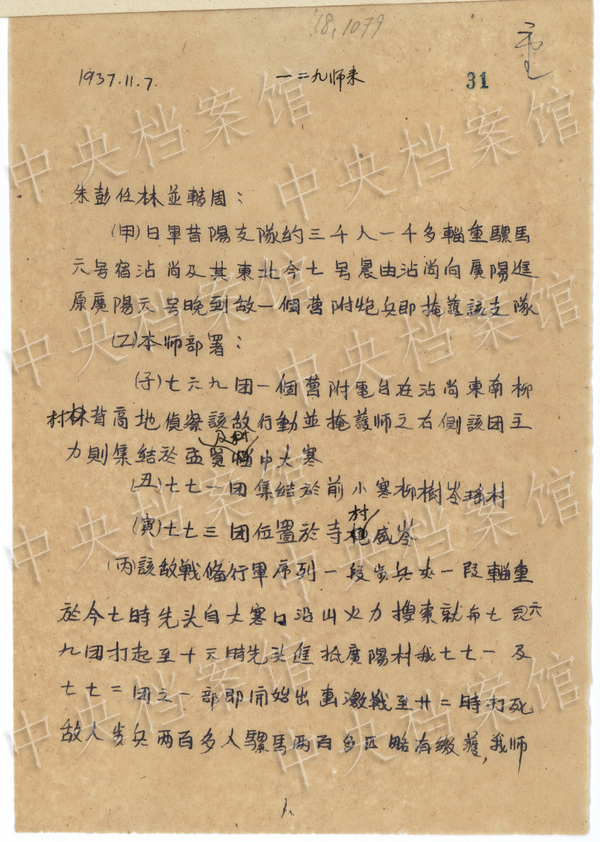 18,1079
1937.11.7.
一二九师来
31
朱彭任林並轉周：
(甲)日軍昔陽支隊約三千人一千多輜重騾馬
元号宿沾尚及其東北今七号晨由沾尚向廣陽進
原廣陽元号晚到敌一個营附炮兵即掩護該支隊
(乙)本师部署：
(子)七六九团一個营附電台在沾尚東南柳
村林背高地偵察該敌行動並掩護师之右側該团主
力則集結於
及村
中大寒
(丑)七七一团集結於前小寒柳樹岺瑶村
(寅)七七三团位置於寺
村
威岺
(丙)該敌戰備行軍序列一段步兵夾一段輜重
於今七時先头自大寒口沿山火力搜索就而七 六
九团打起至十六時先头進抵廣陽村我七七一及
七七二团之一部即開始出擊激戰至廿二時打死
敌人步兵两百多人騾馬两百多匹略有繳獲，我师
1.
中央档案馆
中央档案馆
中央档案馆
中央档案馆
中央档案馆
中央档案馆
中央档案馆
中央档案馆